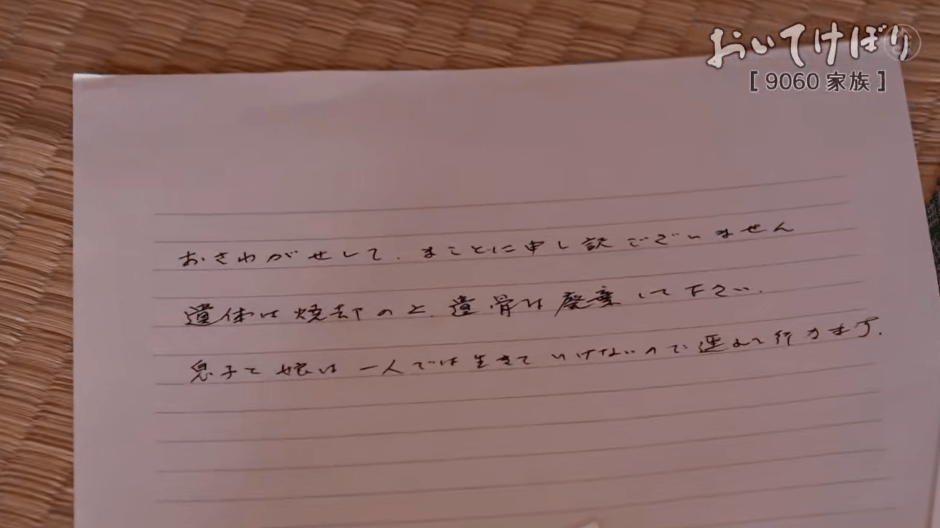 おいてけぼり
[ 9060 家族 ]
おさわがせして、まことに申し訳ございません
遺体は焼却のと、遺骨は廃棄して下さい、
息子と娘は一人では生きていけないので連れて行きます、